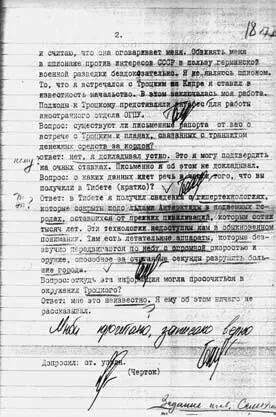 2.
и считаю, что она оговаривает меня. Обвинять меня
в шпионаже против интересов СССР в пользу германской
военной разведки бездоказательно. Я не являлся шпионом.
То, что я встречался с Троцким на Кипре я ставил в
известность начальство. В этом заключалась моя работа.
Подходы к Троцкому представляли интерес для работы
иностранного отдела ОГПУ.
Вопрос: существуют ли письменные рапорта от вас о
встрече с Троцким и планах, связанных с транзитом
денежных средств за кордон?
Ответ: нет, я докладывал устно. Это я могу подтвердить
на очных ставках. Письменно я об этом не докладывал.
Вопрос: о каких данных идет речь в части того, что вы
получили в Тибете (кратко)?
Ответ: в Тибете я получил сведения о гипертехнологиях,
которые сокрыты под льдами Антарктиды в подземных го-
родах, оставшихся от прежних цивилизаций, которым сотни
тысяч лет. Эти технологии недоступны нам в обыкновенном
понимании. Там есть летательные аппараты, которые без-
звучно передвигаются по небу с огромной скоростью и
оружие, способное за считанные секунды разрушить боль-
шие города.
Вопрос: откуда эта информация могла просочиться в
окружении Троцкого?
Ответ: мне это неизвестно. Я ему об этом ничего не
рассказывал.
Мной прочитано, записано верно
Допросил: ст.
(Черток)